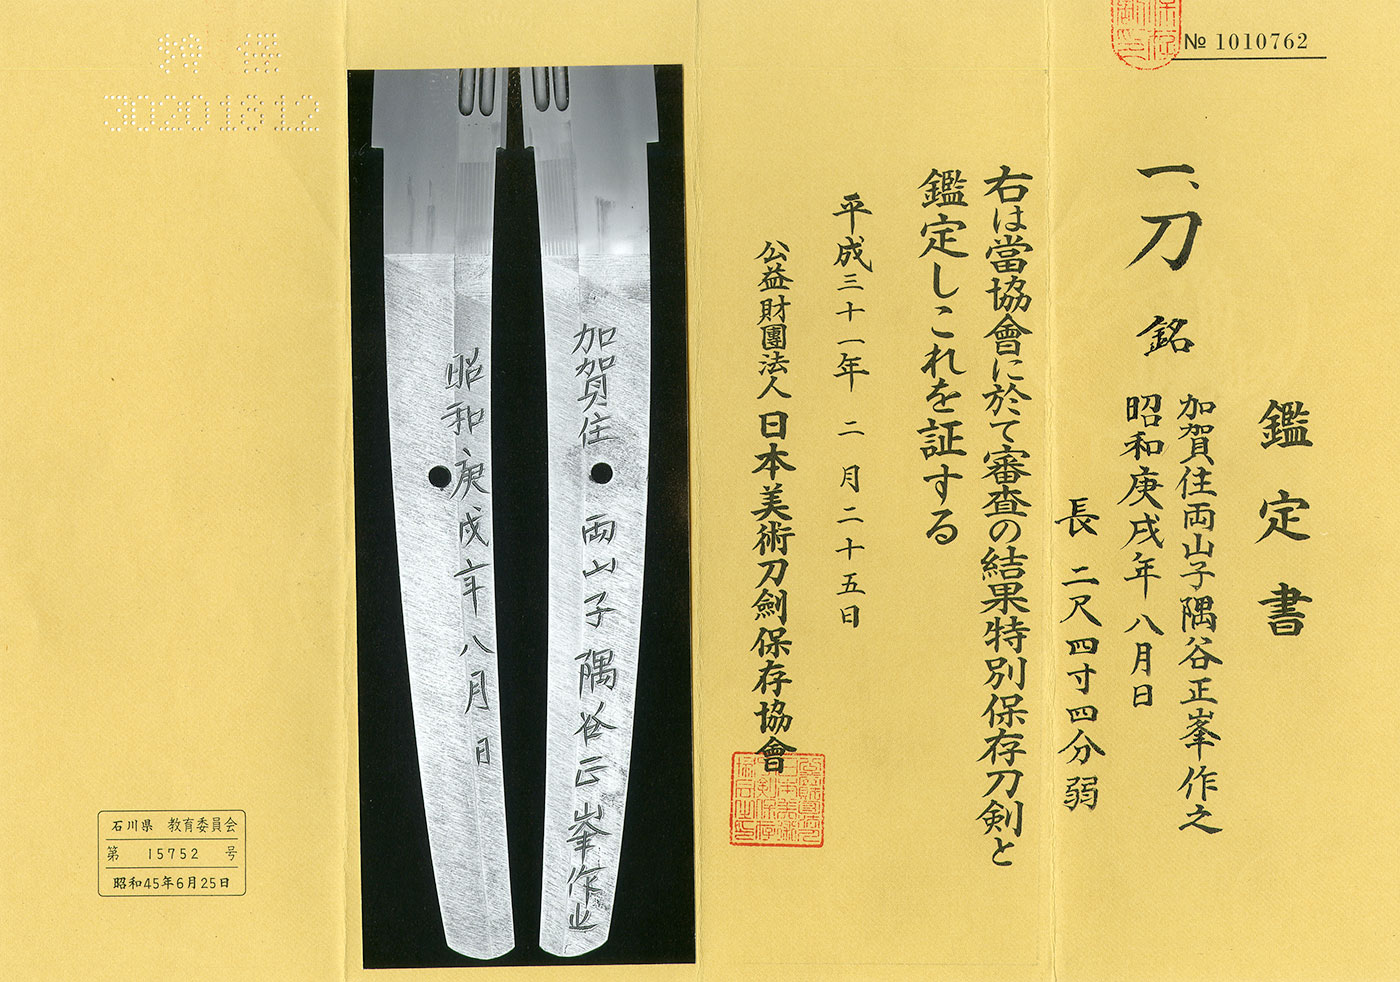 № 1010762
鑑定書
一、刀 銘
加賀住両山子隅谷正峯作之
昭和庚戌年八月日
長 二尺四寸四分弱
右は當協會に於て審査の結果特別保存刀剣と
鑑定しこれを証する
平成三十一年 二月二十五日
公益財團法人 日本美術刀劍保存協會
加賀住両山子隅谷正峯作之
昭和庚戌年八月日
30201812
石川県 教育委員会
第 15752 号
昭和45年6月25日